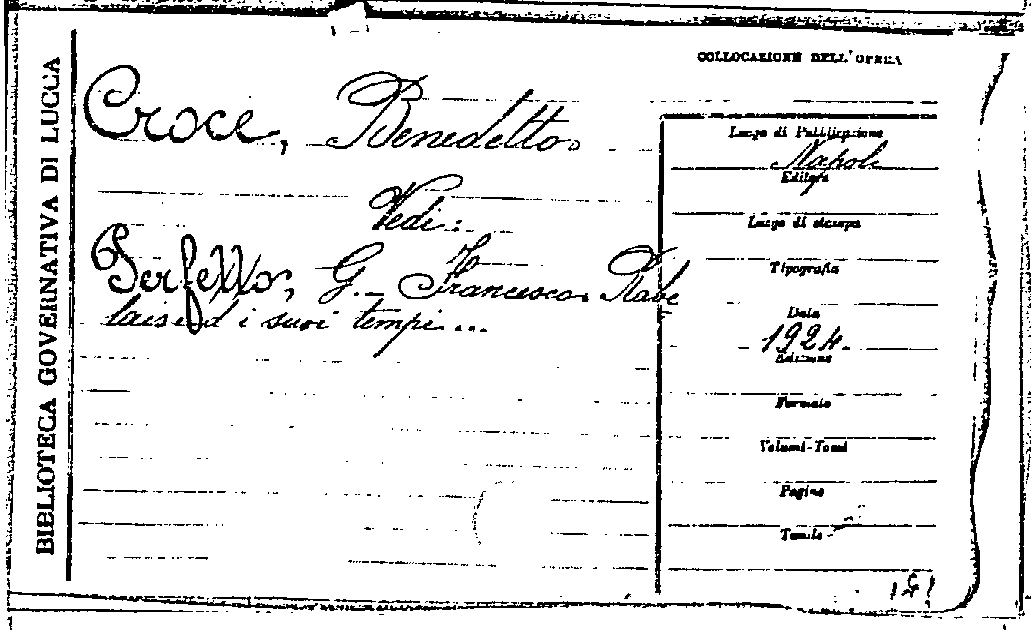 BIBLIOTECA GOVERNATIVA DI LUCCA
Croce, Benedetto
Vedi:
Perfetto, G. - Francesco Rabe
lais ed i suoi tempi...
COLLOCAZIONE DELL'OPERA
Luogo di Pubblicazione
Napoli
Editore
Luogo di stampa
Tipografia
Data
1924.
Edizione
Formato
Volumi-Tomi
Pagine